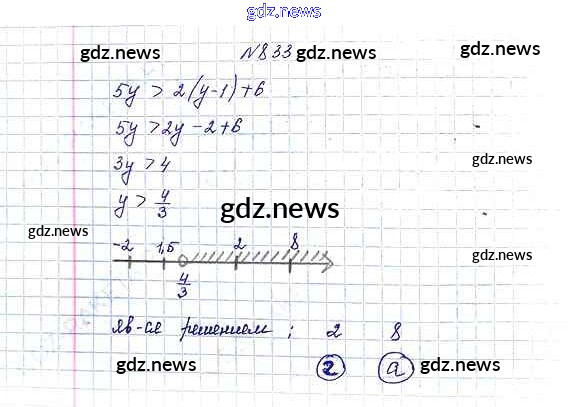 gdz.news
gdz.news №833 gdz.news gdz.news
5y > 2(y-1)+6
5y > 2y - 2 + 6
3y > 4
gdz.news
y > 4/3
gdz.news
gdz.news
-2 1,5 2 8
gdz.news
4/3
яв-ся решением ; 2 8
gdz.news 2 a gdz.news